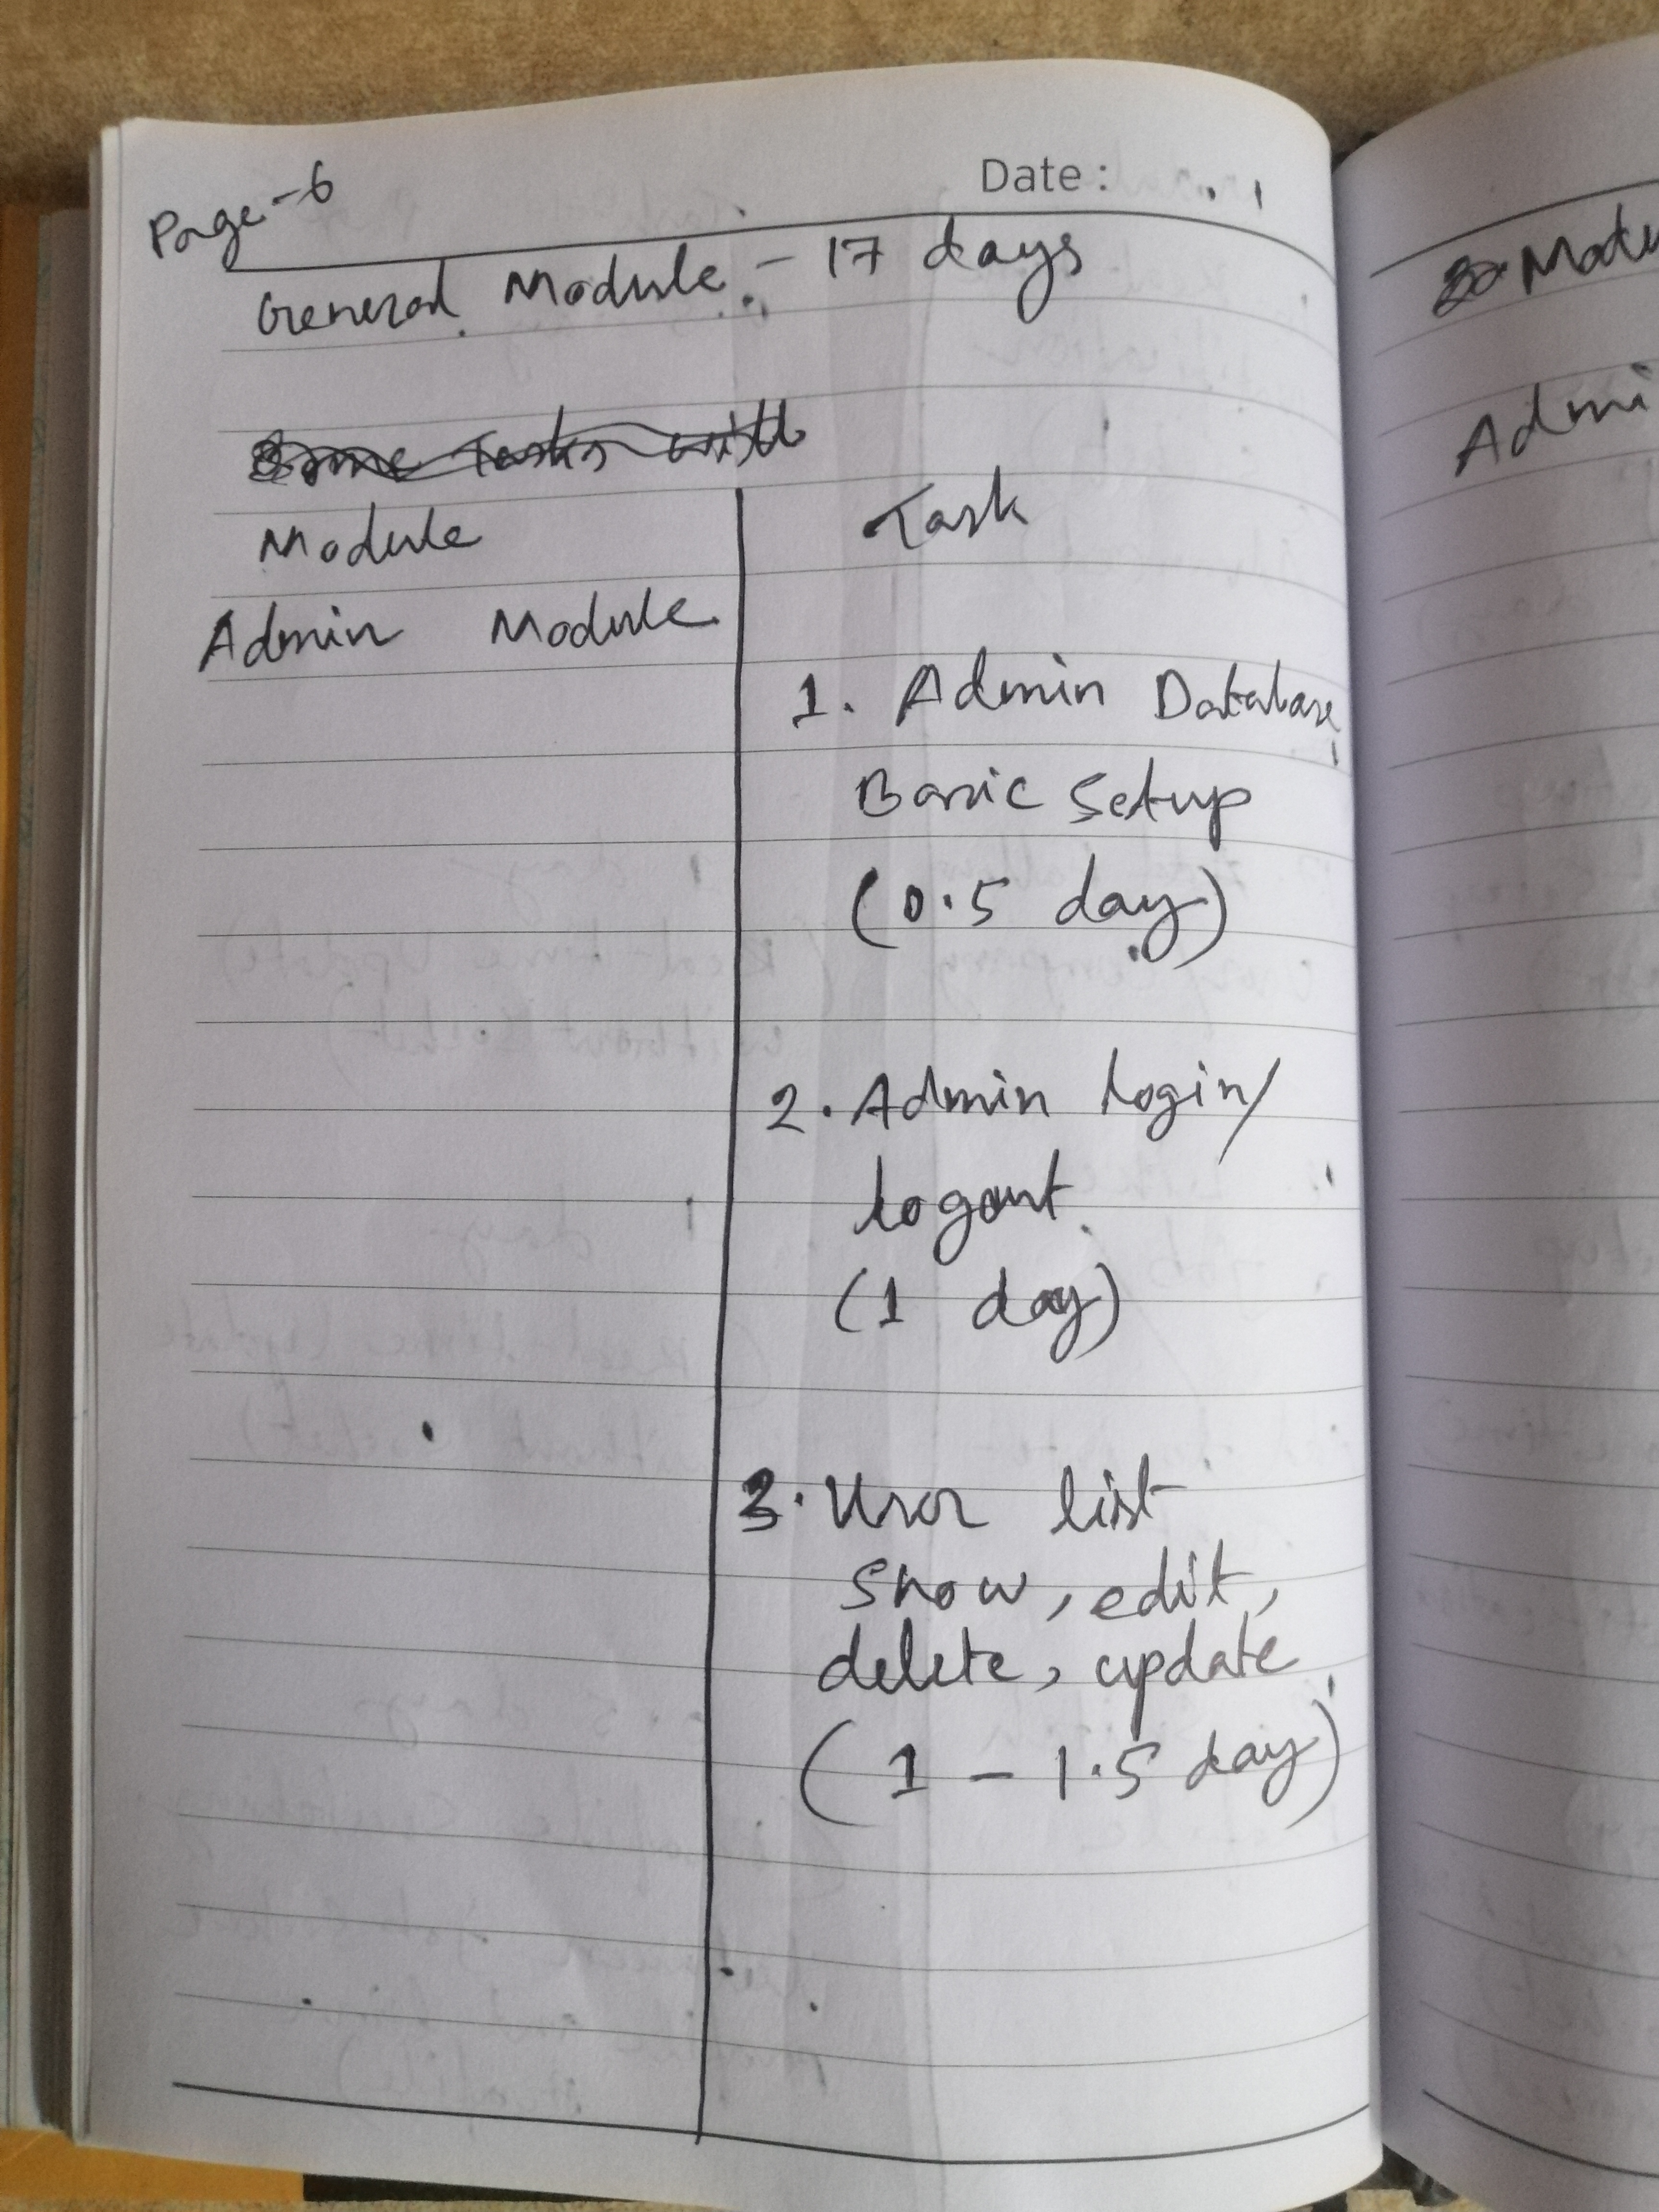 Page-6
Date :
General Module - 17 days
Some Tasks with
Module
Task
Admin Module
1. Admin Database
Basic Setup
(0.5 day)
2. Admin login/
logout
(1 day)
3. User list
show, edit,
delete, update
(1 - 1.5 day)
Admi